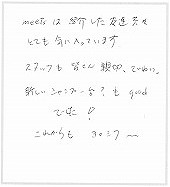 meetsは 紹介した友達共々
とても気に入っています
スタッフも皆さん親切、ていねいに。
新しいシャンプー台?も good
でした!
これからも ヨロシク〜